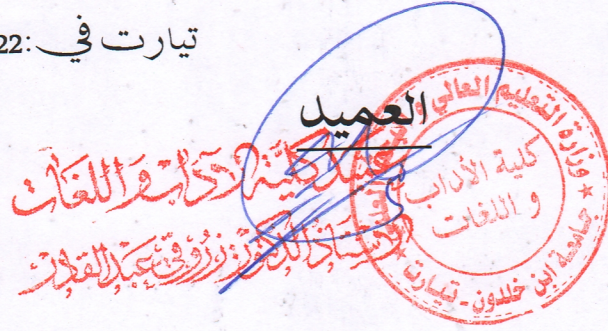 تيارت في: 22
العميد
عميد كلية الآداب واللغات
الأستاذ الدكتور زروقي عبد القادر
وزارة التعليم العالي و
كلية الأداب
و اللغات
جامعة ابن خلدون - تيارت